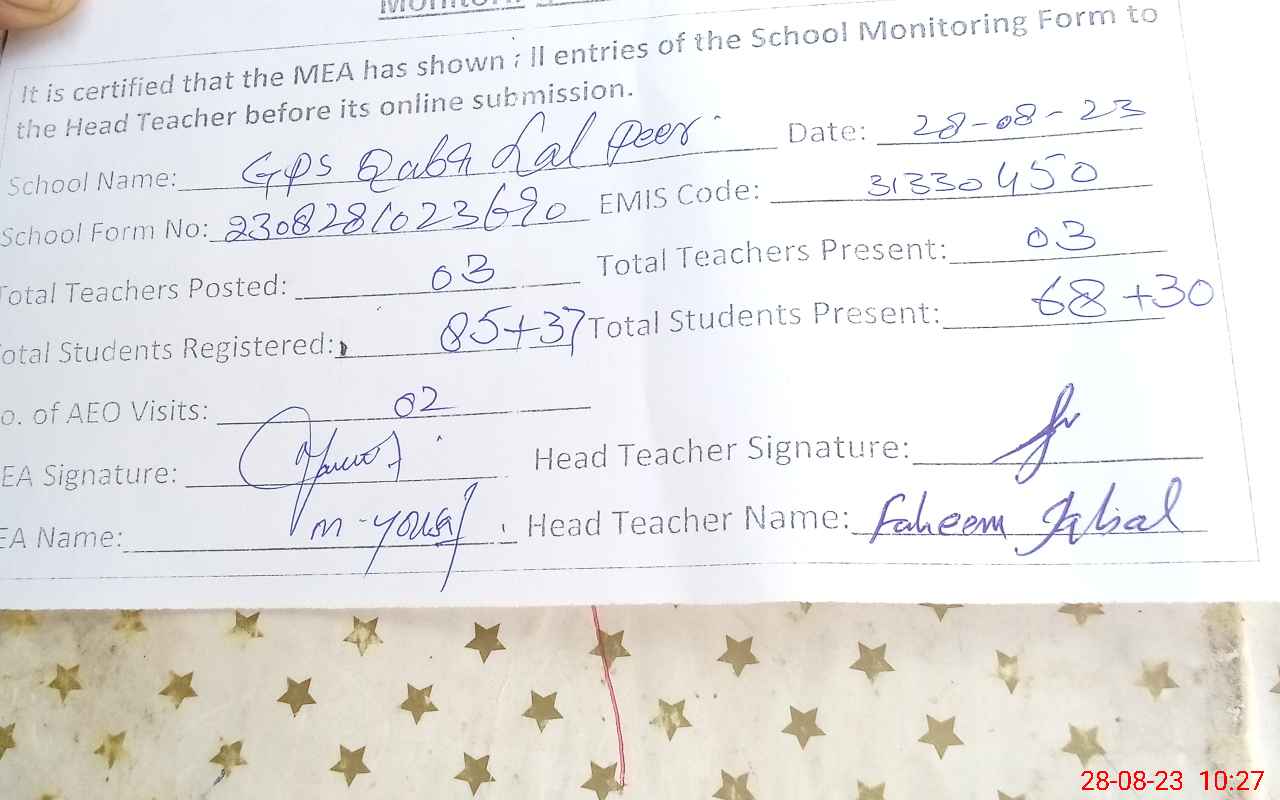 It is certified that the MEA has shown ; ll entries of the School Monitoring Form to
the Head Teacher before its online submission.
School Name: GPS Qaba Lal Peer Date: 28-08-23
School Form No: 2308281023690 EMIS Code: 31330450
Total Teachers Posted: 03 Total Teachers Present: 03
otal Students Registered: 85+37 Total Students Present: 68+30
o. of AEO Visits: 02
EA Signature: Head Teacher Signature:
EA Name: M-Yousaf Head Teacher Name: Faheem Iqbal
28-08-23 10:27